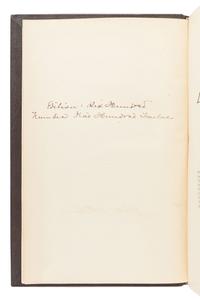 Edition: Six Hundred
Number Six Hundred Twelve